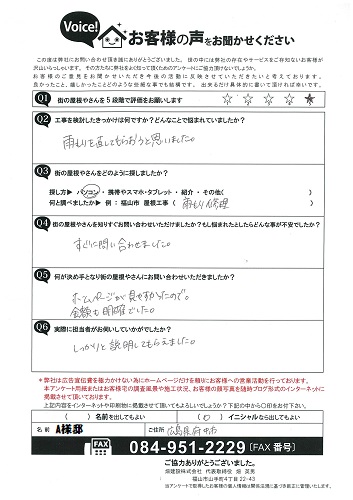 Voice!
お客様の声をお聞かせください
この度は弊社にお問い合わせ頂き誠にありがとうございました。世の中には弊社の存在やサービスをご存知ないお客様が
沢山いらっしゃいます。その方たちに弊社をより知って頂くためのアンケートにご協力頂けないでしょうか。
お客様のご意見をお聞かせいただき今後の活動に反映させていただきたいと考えております。
良かったこと、嬉しかったことどのような些細な事でも結構です。出来るだけ具体的に書いて頂ければ幸いです。
Q1 街の屋根やさんを5段階で評価をお願いします ☆ ☆ ☆ ☆ ★
Q2 工事を検討したきっかけは何ですか?どんなことで悩まれていましたか?
雨もりを直してもらおうと思いました。
Q3 街の屋根やさんをどのように探しましたか?
探し方▶ パソコン・携帯やスマホ・タブレット・紹介・その他( )
何と調べましたか▶ 例:福山市 屋根工事 ( 雨もり修理 )
Q4 街の屋根やさんを知りすぐお問い合わせいただけましたか?もし悩まれたとしたらどんな事が不安でしたか?
すぐに問い合わせました。
Q5 何が決め手となり街の屋根やさんにお問い合わせいただきましたか?
ホームページが見やすかったので。
金額も明確でした。
Q6 実際に担当者がお伺いしていかがでしたか?
しっかりと説明してもらえました。
*弊社は広告宣伝費を極力かけない為にホームページだけを頼りにお客様への営業活動を行っております。
本アンケート用紙またはお客様宅の調査風景や施工状況、お客様の顔写真を随時ブログ形式のインターネットに
掲載させて頂いております。
上記内容をインターネットや印刷物に掲載させて頂いてもよろしいでしょうか?下記の中から○印をお付け下さい。
( )名前を出してもよい ( ○ )イニシャルなら出してもよい
名前 A様邸 ご住所 広島県府中市
FAX 084-951-2229 [FAX 番号]
ご協力ありがとうございました。
福山市山手町4丁目22-43